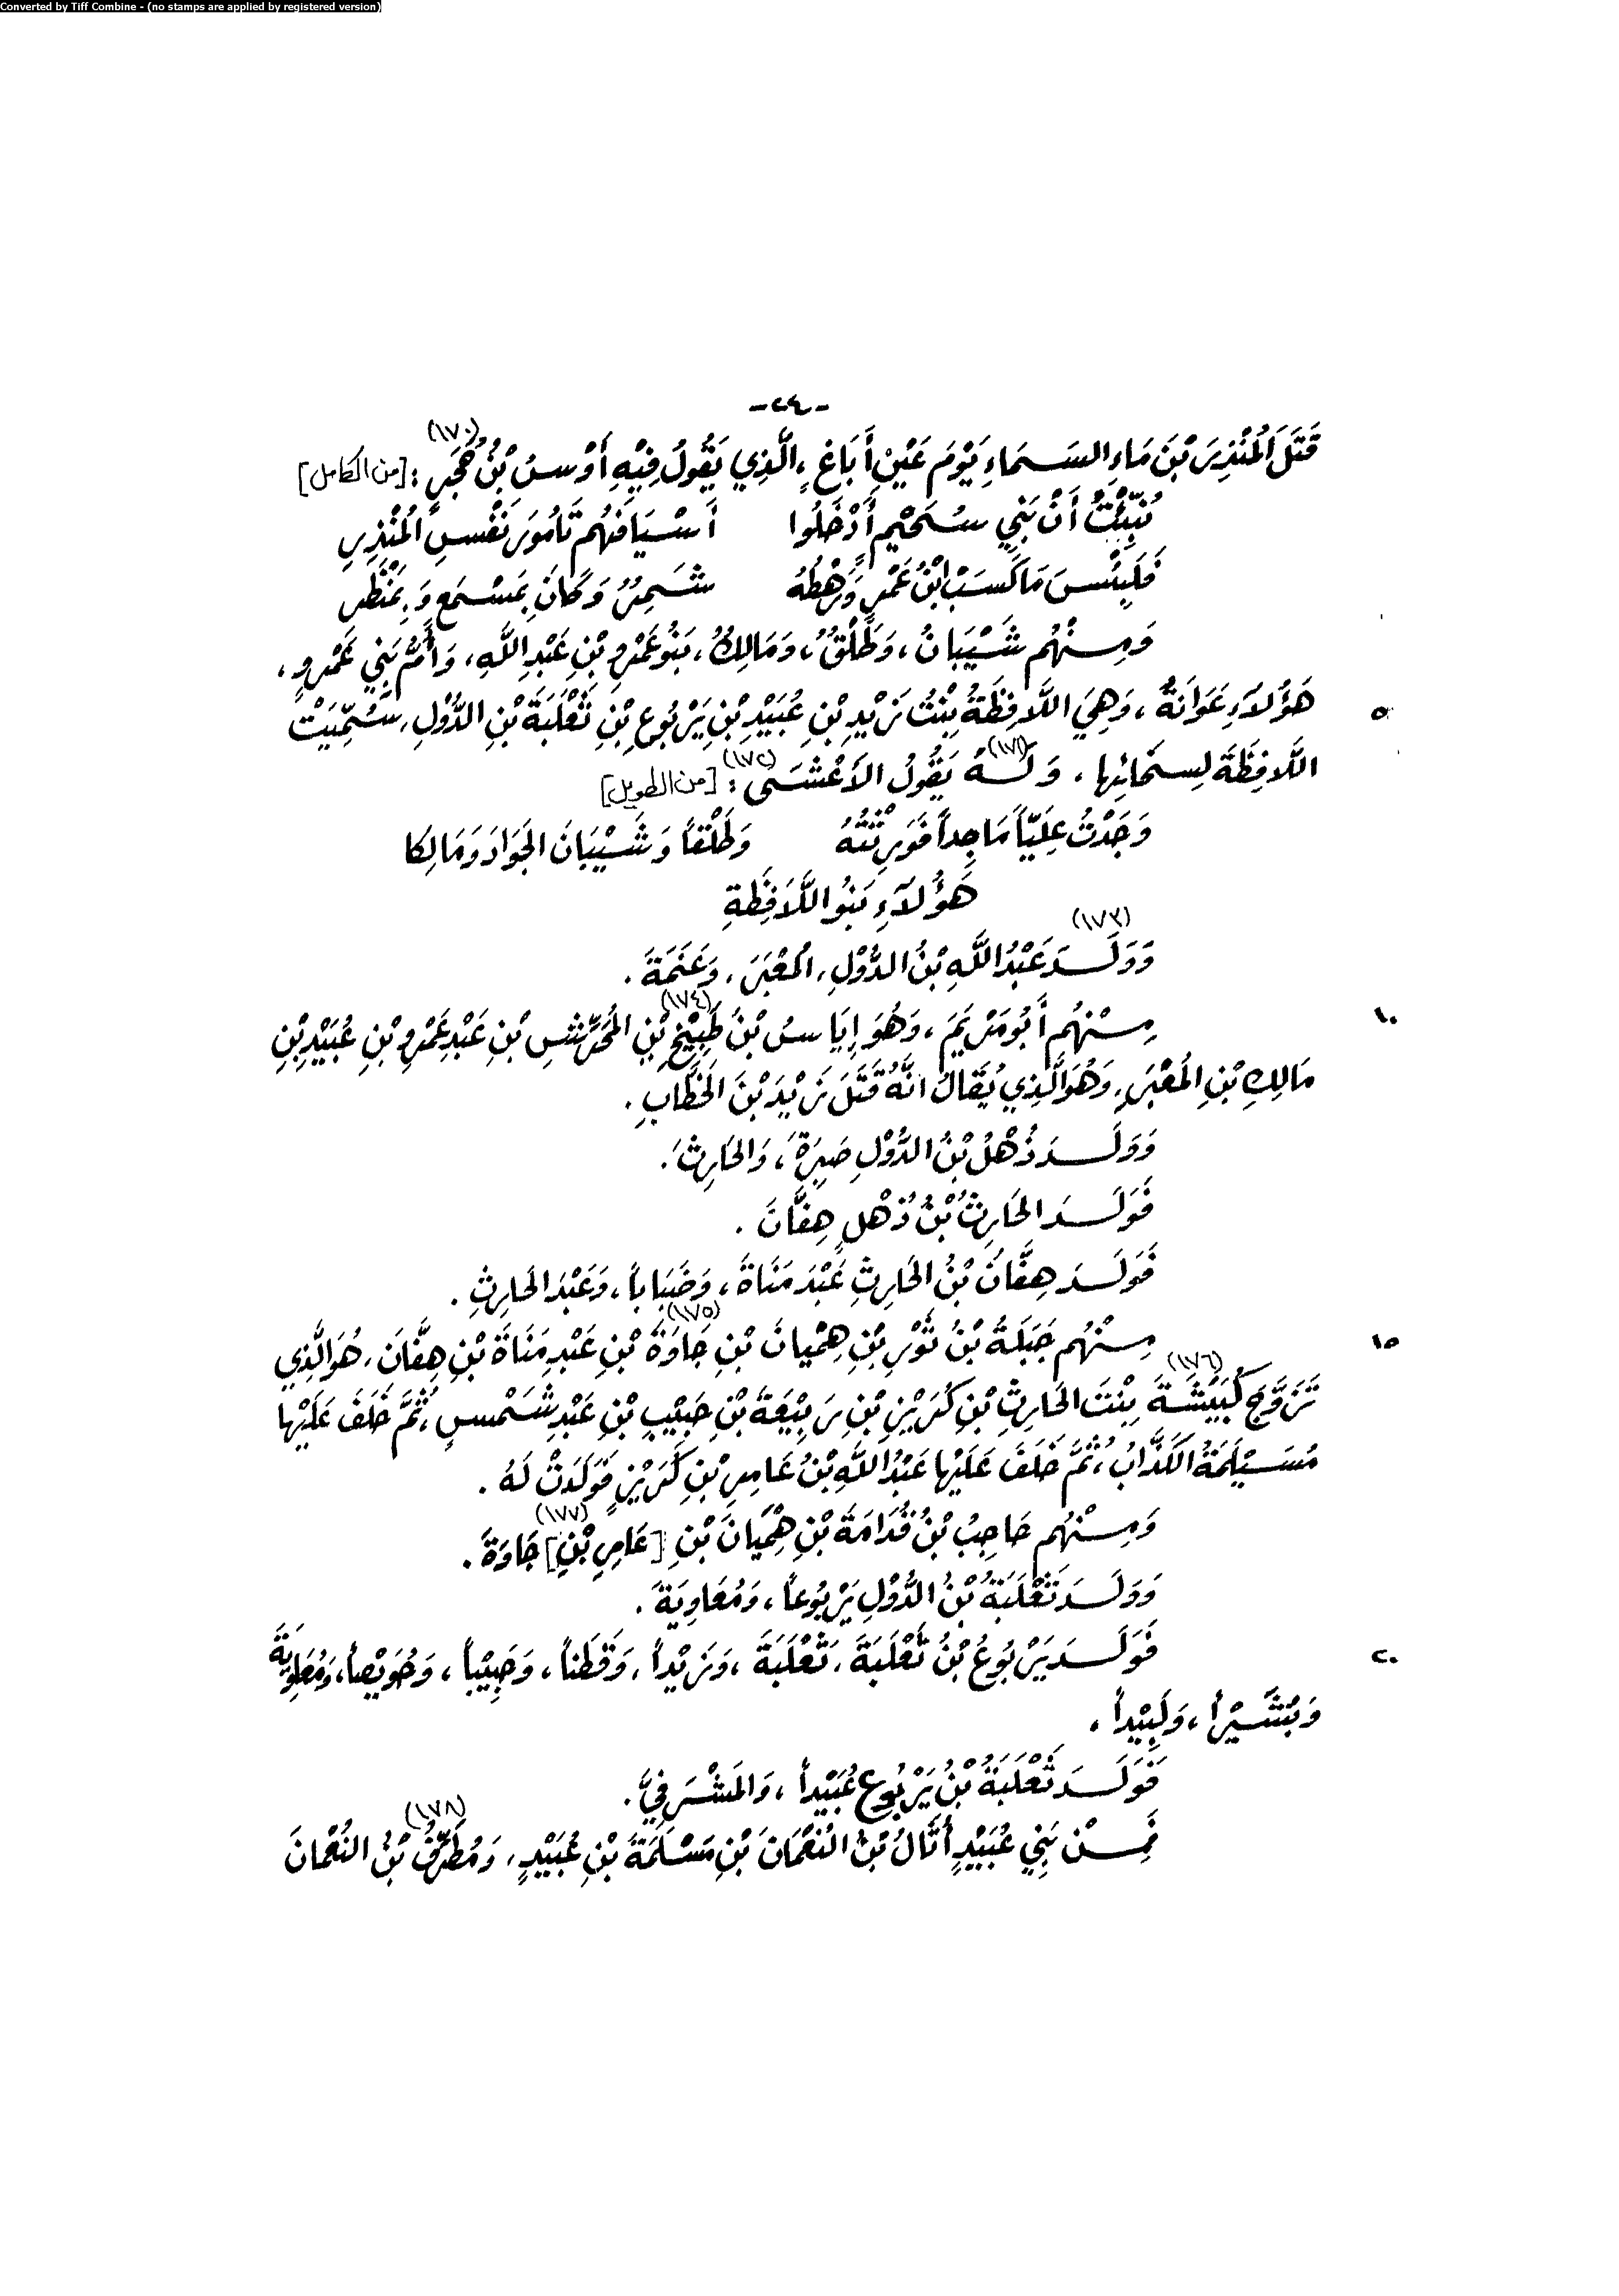 Converted by Tiff Combine - (no stamps are applied by registered version)
-٢٤-
قَتَلَ المُنْذِرَ بْنَ مَاءِ السَمَاءِ يَوْمَ عَيْنِ أَبَاغٍ، الَّذِي يَقُولُ فِيْهِ أَوْسُ بْنُ حُجَرٍ (١٧٠) : [من الكامل]
نُبِّئْتُ أَنْ بَنِي سُحَيْمٍ أَدْخَلُوا أَسْيَافَهُم تَامُورَ نَفْسِ المُنْذِرِ
فَلَبِئْسَ مَا كَسَبْ ابْنُ عَمْرٍ وَرَهْطُهُ شَمِرٌ وَكَانَ بِمَسْمَعٍ وَبِمَنْظَرِ
وَمِنْهُم شَيْبَانُ، وَطَلْقٌ، وَمَالِكٌ، بَنُو عَمْرِو بْنِ عَبْدِ اللَّهِ، وَأُمُّ بَنِي عَمْروٍ،
٥ هَؤُلآءِ عَوَانَةُ، وَهِيَ اللَّافِظَةُ بِنْتُ زَيْدِ بْنِ عُبَيْدِ بْنِ يَرْبُوعِ بْنِ ثَعْلَبَةَ بْنِ الدُّوْلِ، سُمِّيَتْ
اللَّافِظَةَ لِسخَائِها، وَلَهُ (١٧١) يَقُولُ الأَعْشَى (١٧٢) : [من الطويل]
وَجَدْتُ عَلِيّاً مَاجِداً فَوَرِثْتَهُ وَطَلْقاً وَشَيْبَانَ الجَوَادَ وَمَالِكا
هَؤُلآءِ بَنُو اللَّافِظَةِ
وَوَلَدَ عَبْدُ اللَّهِ (١٧٣) بْنُ الدُّوْلِ، المُعْبَرَ، وَغَنَمَةَ.
١٠ مِنْهُم أَبُو مَرْيَمَ، وَهُوَ إِيَاسُ بْنُ طَبِيْخِ (١٧٤) بْنِ المُحَرِّشِ بْنِ عَبْدِ عَمْرِو بْنِ عُبَيْدِ بْنِ
مَالِكِ بْنِ المُعْبَرِ، وَهُوَ الَّذِي يُقَالُ انَّهُ قَتَلَ زَيْدَ بْنَ الخَطَّابِ.
وَوَلَدَ ذُهْلُ بْنُ الدُّوْلِ صَبِرَةَ، وَالحَارِثَ.
فَوَلَدَ الحَارِثُ بْنُ ذُهْلٍ هِفَّانَ.
فَوَلَدَ هِفَّانُ بْنُ الحَارِثِ عَبْدَ مَنَاةَ، وَضَبَاباً، وَعَبْدَ الحَارِثِ.
١٥ مِنْهُم جَبَلَةُ بْنُ ثَوْرِ بْنِ هِمْيانَ بْنِ جَاوَةَ (١٧٥) بْنِ عَبْدِ مَنَاةَ بْنِ هِفَّانَ، هُوَ الَّذِي
تَزَوَّجَ كُبَيْشَةَ (١٧٦) بِنْتَ الحَارِثِ بْنِ كُرَيْزِ بْنِ رَبِيْعَةَ بْنِ حَبِيْبِ بْنِ عَبْدِ شَمْسٍ، ثُمَّ خَلَفَ عَلَيْها
مُسَيْلَمَةُ الكَذَّابُ، ثُمَّ خَلَفَ عَلَيْها عَبْدُ اللَّهِ بْنُ عَامِرِ بْنِ كُرَيْزٍ فَوَلَدَتْ لَهُ.
وَمِنْهُم حَاجِبُ بْنُ قُدَامَةَ بْنِ هِمْيَانَ بْنِ [عَامِرِ بْنِ] (١٧٧) جَاوَةَ.
وَوَلَدَ ثَعْلَبَةُ بْنُ الدُّوْلِ يَرْبُوعاً، وَمُعَاوِيَةَ.
٢٠ فَوَلَدَ يَرْبُوعُ بْنُ ثَعْلَبَةَ، ثَعْلَبَةَ، وَزَيْداً، وَقَطَناً، وَحَبِيْباً، وَحُوَيْصاً، وَمُعَاوِيَةَ
وَبُشَيْراً، وَلَبِيْداً،
فَوَلَدَ ثَعْلَبَةُ بْنُ يَرْبُوعٍ عُبَيْداً، وَالمَشْرَفِيَّ.
فَمِنْ بَنِي عُبَيْدٍ أُثَالُ بْنُ النُعْمَانَ بْنِ مَسْلَمَةَ بْنِ عُبَيْدٍ، وَمُطَرِّفُ (١٧٨) بْنُ النُعْمَانَ